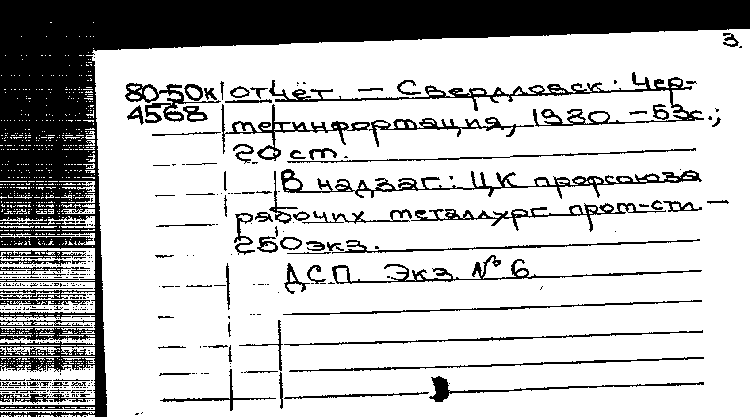 3.
80-50к отчёт. – Свердловск: Чер-
4568 метинформация, 1980. – 53с.;
20 ст.
В надзаг.: ЦК профсоюза
рабочих металлург. пром-сти. –
250 экз.
ДСП. Экз. № 6.